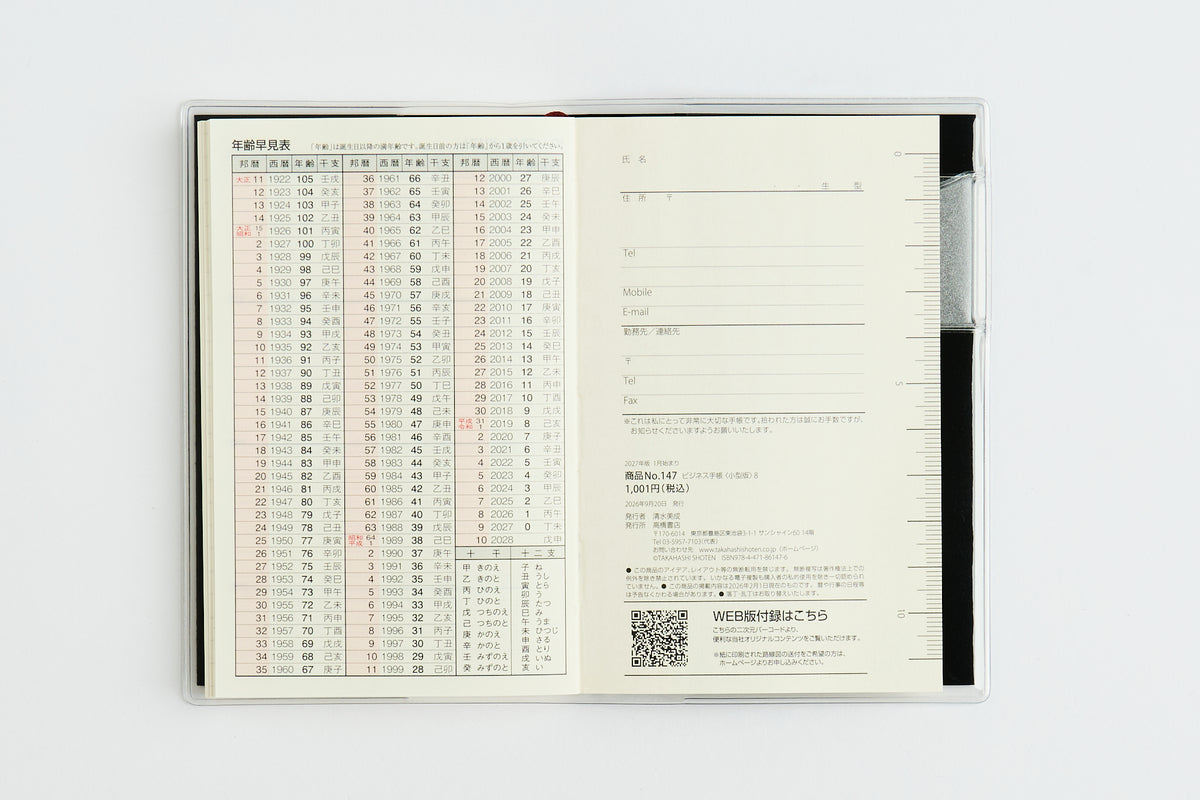 年齢早見表 「年齢」は誕生日以降の満年齢です。誕生日前の方は「年齢」から1歳を引いてください。
邦暦 西暦 年齢 干支 邦暦 西暦 年齢 干支 邦暦 西暦 年齢 干支
大正 11 1922 105 壬戌 36 1961 66 辛丑 12 2000 27 庚辰
12 1923 104 癸亥 37 1962 65 壬寅 13 2001 26 辛巳
13 1924 103 甲子 38 1963 64 癸卯 14 2002 25 壬午
14 1925 102 乙丑 39 1964 63 甲辰 15 2003 24 癸未
大正 15 昭和 1 1926 101 丙寅 40 1965 62 乙巳 16 2004 23 甲申
2 1927 100 丁卯 41 1966 61 丙午 17 2005 22 乙酉
3 1928 99 戊辰 42 1967 60 丁未 18 2006 21 丙戌
4 1929 98 己巳 43 1968 59 戊申 19 2007 20 丁亥
5 1930 97 庚午 44 1969 58 己酉 20 2008 19 戊子
6 1931 96 辛未 45 1970 57 庚戌 21 2009 18 己丑
7 1932 95 壬申 46 1971 56 辛亥 22 2010 17 庚寅
8 1933 94 癸酉 47 1972 55 壬子 23 2011 16 辛卯
9 1934 93 甲戌 48 1973 54 癸丑 24 2012 15 壬辰
10 1935 92 乙亥 49 1974 53 甲寅 25 2013 14 癸巳
11 1936 91 丙子 50 1975 52 乙卯 26 2014 13 甲午
12 1937 90 丁丑 51 1976 51 丙辰 27 2015 12 乙未
13 1938 89 戊寅 52 1977 50 丁巳 28 2016 11 丙申
14 1939 88 己卯 53 1978 49 戊午 29 2017 10 丁酉
15 1940 87 庚辰 54 1979 48 己未 30 2018 9 戊戌
16 1941 86 辛巳 55 1980 47 庚申 平成 31 令和 1 2019 8 己亥
17 1942 85 壬午 56 1981 46 辛酉 2 2020 7 庚子
18 1943 84 癸未 57 1982 45 壬戌 3 2021 6 辛丑
19 1944 83 甲申 58 1983 44 癸亥 4 2022 5 壬寅
20 1945 82 乙酉 59 1984 43 甲子 5 2023 4 癸卯
21 1946 81 丙戌 60 1985 42 乙丑 6 2024 3 甲辰
22 1947 80 丁亥 61 1986 41 丙寅 7 2025 2 乙巳
23 1948 79 戊子 62 1987 40 丁卯 8 2026 1 丙午
24 1949 78 己丑 63 1988 39 戊辰 9 2027 0 丁未
25 1950 77 庚寅 昭和 64 平成 1 1989 38 己巳 10 2028 戊申
26 1951 76 辛卯 2 1990 37 庚午 十干 十二支
27 1952 75 壬辰 3 1991 36 辛未 甲 きのえ 子 ね
28 1953 74 癸巳 4 1992 35 壬申 乙 きのと 丑 うし
29 1954 73 甲午 5 1993 34 癸酉 丙 ひのえ 寅 とら
30 1955 72 乙未 6 1994 33 甲戌 丁 ひのと 卯 う
31 1956 71 丙申 7 1995 32 乙亥 戊 つちのえ 辰 たつ
32 1957 70 丁酉 8 1996 31 丙子 己 つちのと 巳 み
33 1958 69 戊戌 9 1997 30 丁丑 庚 かのえ 午 うま
34 1959 68 己亥 10 1998 29 戊寅 辛 かのと 未 ひつじ
35 1960 67 庚子 11 1999 28 己卯 壬 みずのえ 申 さる
癸 みずのと 酉 とり
戌 いぬ
亥 い
氏名
・ ・ 生 型
住所 〒
Tel
Mobile
E-mail
勤務先／連絡先
〒
Tel
Fax
※これは私にとって非常に大切な手帳です。拾われた方は誠にお手数ですが、
お知らせくださいますようお願いいたします。
2027年版 1月始まり
商品No.147 ビジネス手帳〈小型版〉8
1,001円(税込)
2026年9月20日 発行
発行者 清水美成
発行所 高橋書店
〒170-6014 東京都豊島区東池袋3-1-1 サンシャイン60 14階
Tel 03-5957-7103(代表)
お問い合わせ先 www.takahashishoten.co.jp（ホームページ）
©TAKAHASHI SHOTEN ISBN978-4-471-86147-6
● この商品のアイデア、レイアウト等の無断転用を禁じます。無断複写は著作権法上での
例外を除き禁止されています。いかなる電子複製も購入者の私的使用を除き一切認められ
ていません。● この商品の掲載内容は2026年2月1日現在のものです。暦や行事の日程等
は予告なくかわる場合があります。● 落丁・乱丁はお取り替えいたします。
WEB版付録はこちら
こちらの二次元バーコードより、
便利な当社オリジナルコンテンツをご覧いただけます。
※紙に印刷された路線図の送付をご希望の方は、
ホームページよりお申し込みください。
0
5
10